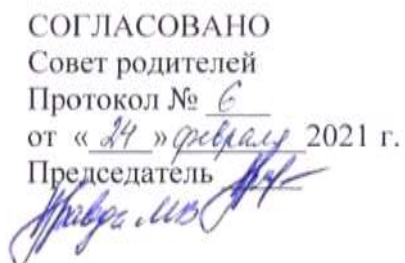 СОГЛАСОВАНО
Совет родителей
Протокол № 6
от «24» февраля 2021 г.
Председатель